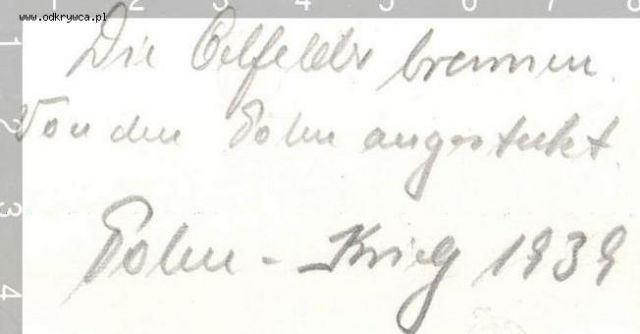 www.odkrywca.pl
Die Oelfelder brennen.
Von den Polen angesteckt.
Polen - Krieg 1939